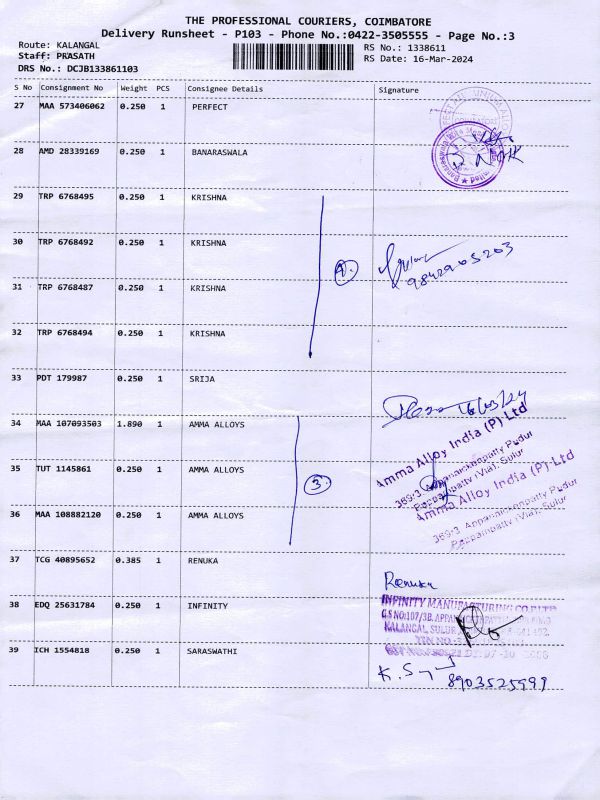 THE PROFESSIONAL COURIERS, COIMBATORE
Delivery Runsheet - P103 - Phone No.:0422-3505555 - Page No.:3
Route: KALANGAL RS No.: 1338611
Staff: PRASATH RS Date: 16-Mar-2024
DRS No.: DCJB133861103
S No Consignment No Weight PCS Consignee Details Signature
27 MAA 573406062 0.250 1 PERFECT
28 AMD 28339169 0.250 1 BANARASWALA
29 TRP 6768495 0.250 1 KRISHNA
30 TRP 6768492 0.250 1 KRISHNA
4.
9842905203
31 TRP 6768487 0.250 1 KRISHNA
32 TRP 6768494 0.250 1 KRISHNA
33 PDT 179987 0.250 1 SRIJA
16/03/24
34 MAA 107093503 1.890 1 AMMA ALLOYS
Amma Alloy India (P) Ltd
369-3 Appanaickenpatty Pudur
Pappampatty (Via), Sulur
35 TUT 1145861 0.250 1 AMMA ALLOYS
3.
Amma Alloy India (P) Ltd
369-3 Appanaickenpatty Pudur
Pappampatty (Via), Sulur
36 MAA 108882120 0.250 1 AMMA ALLOYS
37 TCG 40895652 0.385 1 RENUKA
Renuka
38 EDQ 25631784 0.250 1 INFINITY
INFINITY MANUFACTURING CO.LTD
KALANGAL, SULUR
39 ICH 1554818 0.250 1 SARASWATHI
8903525999